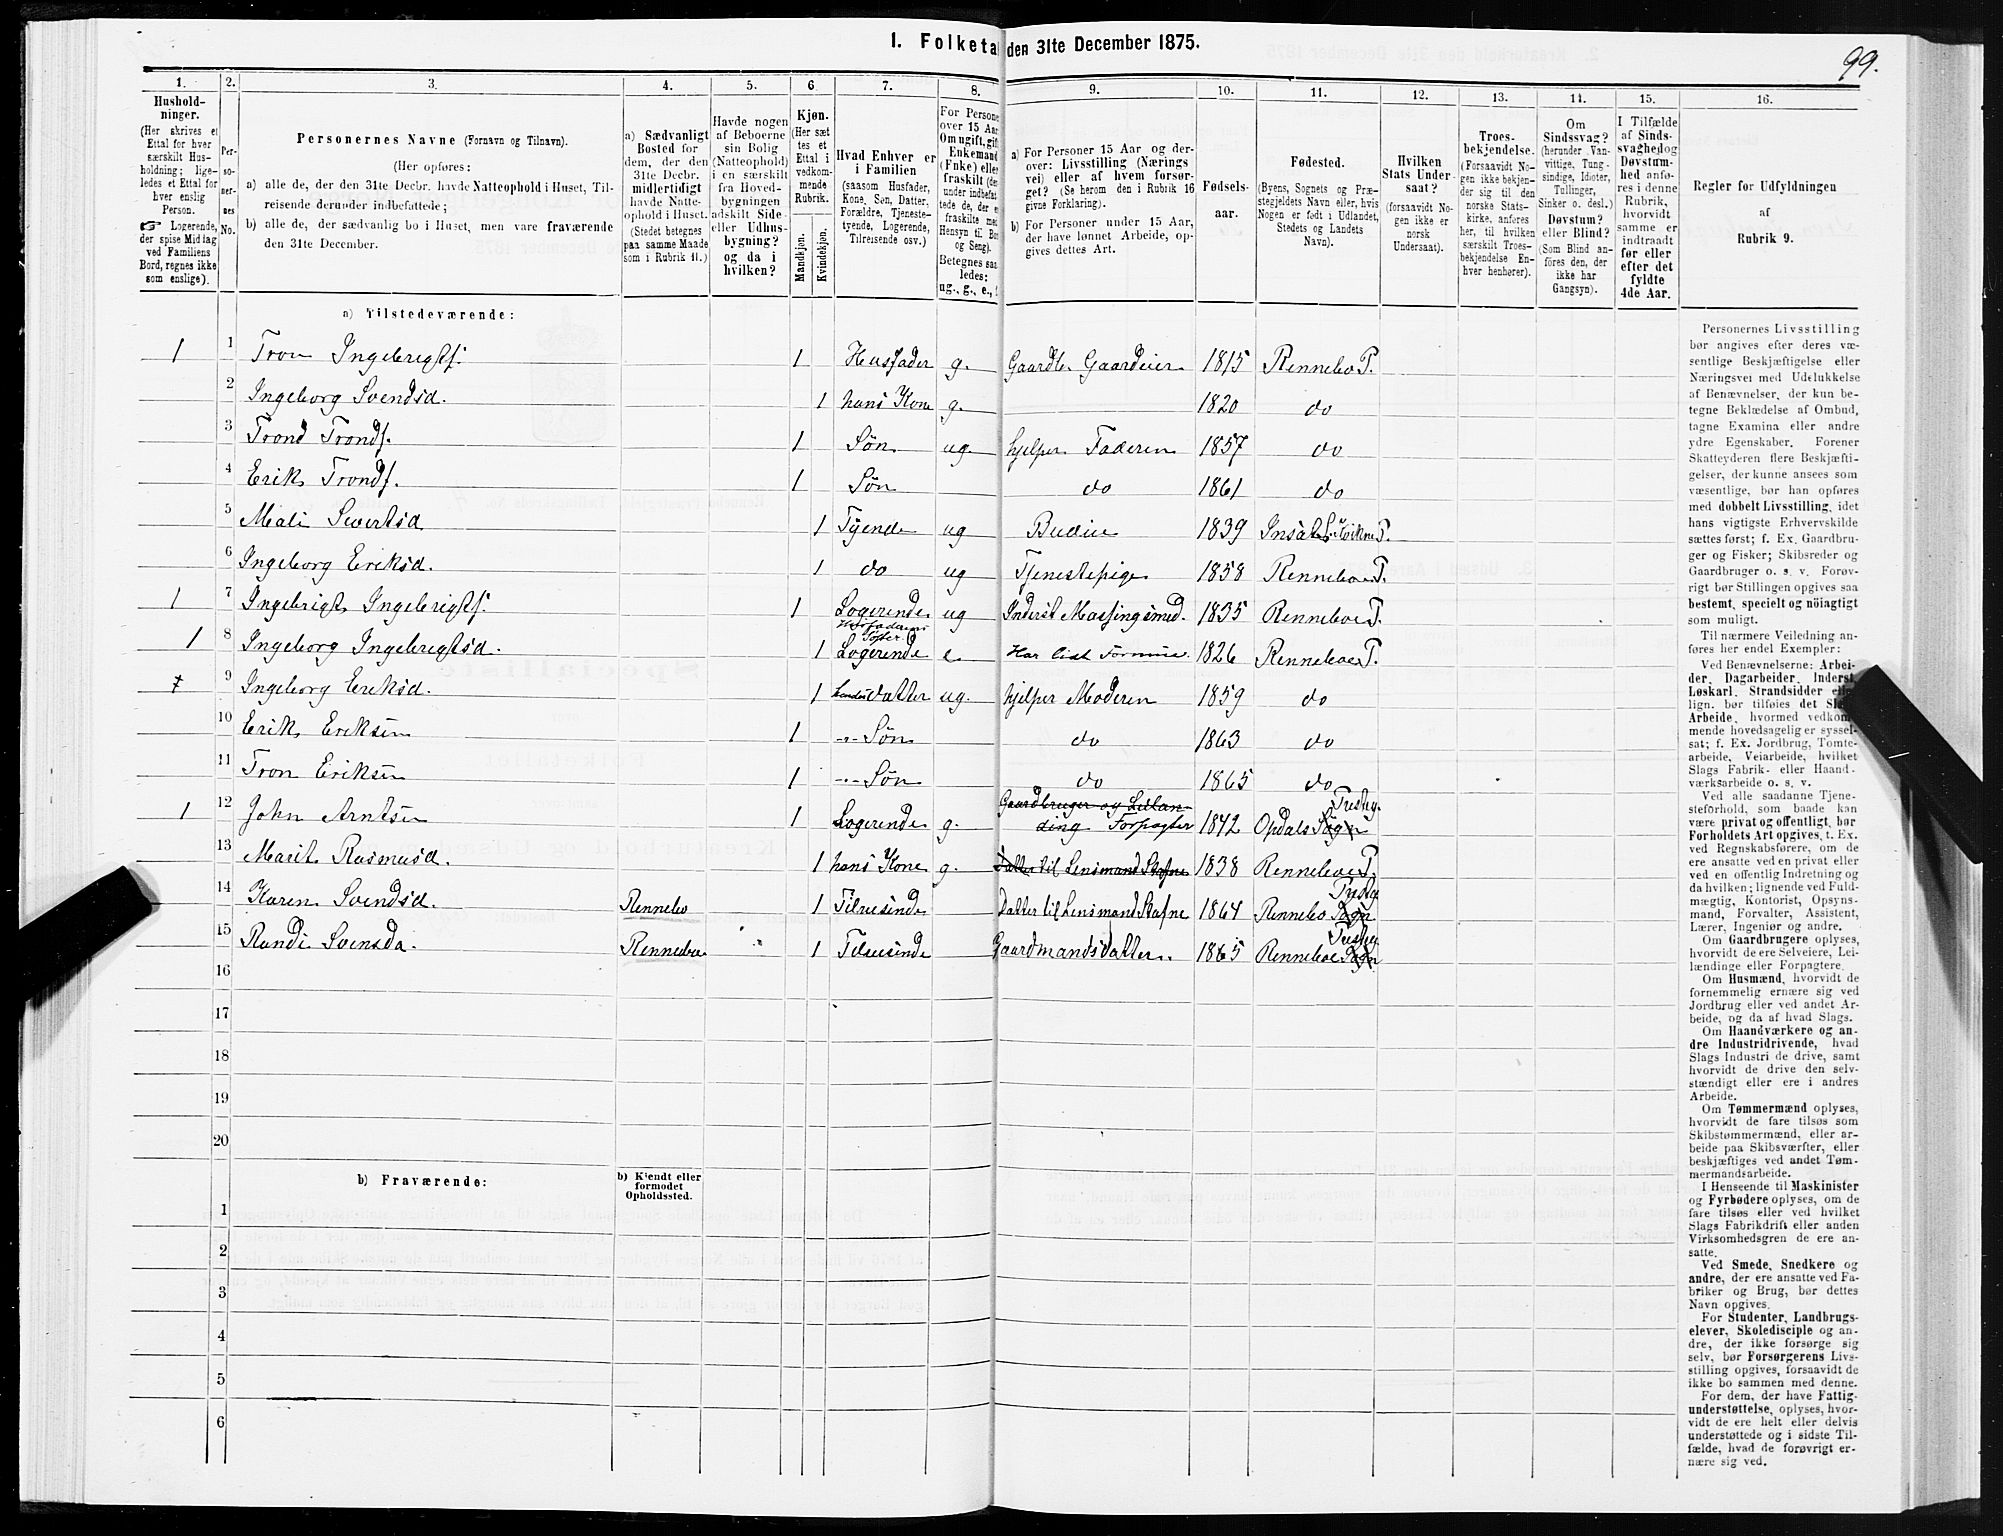 1. Folketa den 31te December 1875.
99.
1. 2. 3. 4. 5. 6 7. 8. 9. 10. 11. 12. 13. 14. 15. 16.
Hushold-
ninger.
(Her skrives et
Ettal for hver
særskilt Hus-
holdning; lige-
ledes et Ettal for
hver enslig
Person.
☞ Logerende,
der spise Middag
ved Familiens
Bord, regnes ikke
som enslige).
Per-
so-
ner-
nes
No.
Personernes Navne (Fornavn og Tilnavn).
(Her opføres:
a) alle de, der den 31te Decbr. havde Natteophold i Huset, Til-
reisende derunder indbefattede;
b) alle de, der sædvanlig bo i Huset, men vare fraværende
den 31te December.
a) Sædvanligt
Bosted for
dem, der den
31te Decbr.
midlertidigt
havde Natte-
ophold i Huset.
(Stedet betegnes
paa samme Maade
som i Rubrik 11.)
Havde nogen
af Beboerne
sin Bolig
(Natteophold)
i en særskilt
fra Hoved-
bygningen
adskilt Side-
eller Udhus-
bygning?
og da i
hvilken?
Kjøn.
(Her sæt
tes et
Ettal i
vedkom-
mende
Rubrik.
Mandkjøn.
Kvindekjøn.
Hvad Enhver er
i Familien
(saasom Husfader,
Kone, Søn, Datter,
Forældre, Tjeneste-
tyende, Logerende,
Tilreisende osv.)
For Persone
over 15 Aar
Om ugift, gift
Enkemand
(Enke) eller
fraskilt (de
under indbefat
tede de, der e
fraskilte me
Hensyn til Bo
og Seng).
Betegnes saa
ledes:
ug., g., e.,
a) For Personer 15 Aar og der-
over: Livsstilling (Nærings
vei) eller af hvem forsør-
get? (Se herom den i Rubrik 16
givne Forklaring).
b) For Personer under 15 Aar,
der have lønnet Arbeide, op-
gives dettes Art.
Fødsels-
aar.
Fødested.
(Byens, Sognets og Præ-
stegjeldets Navn eller, hvis
Nogen er født i Udlandet,
Stedets og Landets
Navn).
Hvilken
Stats Under-
saat?
(forsaavidt No-
gen ikke er
norsk
Undersaat).
Troes-
bekjendelse.
(Forsaavidt No-
gen ikke bekjen-
der sig til den
norske Stats-
kirke, anføres
her, til hvilken
særskilt Troes-
bekjendelse En-
hver henhører).
Om
Sindssvag?
(herunder Van-
vittige, Tung-
sindige, Idioter,
Tullinger,
Sinker o. desl.)
Døvstum?
eller Blind?
(Som Blind an-
føres den, der
ikke har
Gangsyn).
I Tilfælde
af Sinds-
svaghed og
Døvstum-
hed anfø-
res i denne
Rubrik,
hvorvidt
samme er
indtraadt
før eller
efter det
fyldte
4de Aar.
Regler for Udfyldningen
af
Rubrik 9.
a) Tilstedeværende:
1 1 Tron Ingebrigtf. 1 Husfader g. Gaardb. Gaardeier 1815 Rennebo P.
2 Ingeborg Svendsd. 1 hans Kone g. 1820 do
3 Trond Trondf. 1 Søn ug. hjelper Faderen 1857 do
4 Erik Trondf. 1 Søn do 1861 do
5 Mali Sivertsd 1 Tyende ug Budeie 1839
6 Ingeborg Eriksd. 1 do ug Tjenestepige 1858 Renneboe P.
1 7 Ingebrigt Ingebrigtf. 1 Logerende ug Inderst Massingsmed. 1835 Renneboe P.
Husfaderens
Søster.
1 8 Ingeborg Ingebrigtsd. 1 Logerende e. Har lidt Formue. 1826 Renneboe P.
9 Ingeborg Eriksd. 1 hendes Datter ug. hjelper Moderen 1859 do
10 Erik Eriksen 1 -"- Søn do 1863 do
11 Tron Eriksen 1 -"- Søn do 1865 do
Gaardbruger og Leilæn-
1 12 John Arntsen 1 Logerende g. ding Forpagter 1842 Opdals Sogn
13 Marit Rasmusd. 1 hans Kone g. Datter til Lensmand Stafne 1838 Renneboe P.
14 Karen Svendsd. Rennebo 1 Tilreisende Datter til Lensmand Stafne 1864 Rennebo Sogn
15 Randi Svensda. Renneboe 1 Tilreisende Gaardmandsdatter. 1865 Renneboe Sogn
16
17
18
19
20
b) Fraværende:
b) Kjendt eller
formodet
Opholdssted.
1
2
3
4
5
6
Personernes Livsstilling
bør angives efter deres væ-
sentlige Beskjæftigelse eller
Næringsvei med Udelukkelse
af Benævnelser, der kun be-
tegne Beklædelse af Ombud,
tagne Examina eller andre
ydre Egenskaber. Forener
Skatteyderen flere Beskjæfti-
gelser, der kunne ansees som
væsentlige, bør han opføres
med dobbelt Livsstilling, idet
hans vigtigste Erhvervskilde
sættes først; f. Ex. Gaardbru-
ger og Fisker; Skibsreder og
Gaardbruger o. s. v. Forøv-
rigt bør Stillingen opgives saa
bestemt, specielt og nøiagtigt
som muligt.
Til nærmere Veiledning an-
føres her endel Exempler:
Ved Benævnelserne: Arbei-
der, Dagarbeider, Inderst,
Løskarl, Strandsidder eller
lign. bør tilføies det Slags
Arbeide, hvormed vedkom-
mende hovedsagelig er syssel-
sat; f. Ex. Jordbrug, Tomte-
arbeide, Veiarbeide, hvilket
Slags Fabrik- eller Haand-
værksarbeide o. s. v.
Ved alle saadanne Tjene-
steforhold, som baade kan
være privat og offentligt, bør
Forholdets Art opgives, t. Ex.
ved Regnskabsførere, om de
ere ansatte ved en privat eller
ved en offentlig Indretning og
da hvilken; lignende ved Fuld-
mægtig, Kontorist, Opsyns-
mand, Forvalter, Assistent,
Lærer, Ingeniør og andre.
Om Gaardbrugere oplyses,
hvorvidt de ere Selveiere, Lei-
lændinge eller Forpagtere.
Om Husmænd, hvorvidt de
fornemmelig ernære sig ved
Jordbrug eller ved andet Ar-
beide, og da af hvad Slags.
Om Haandværkere og an-
dre Industridrivende, hvad
Slags Industri de drive, samt
hvorvidt de drive den selv-
stændigt eller ere i andres
Arbeide.
Om Tømmermænd oplyses,
hvorvidt de fare tilsøs som
Skibstømmermænd, eller ar-
beide paa Skibsværfter, eller
beskjæftiges ved andet Tøm-
mermandsarbeide.
I Henseende til Maskinister
og Fyrbødere oplyses, om de
fare tilsøs eller ved hvilket
Slags Fabrikdrift eller anden
Virksomhedsgren de ere an-
satte.
Ved Smede, Snedkere og
andre, der ere ansatte ved Fa-
briker og Brug, bør dettes
Navn opgives.
For Studenter, Landbrugs-
elever, Skoledisciple og an-
dre, der ikke forsørge sig
selv, bør Forsørgerens Livs-
stilling opgives, forsaavidt de
ikke bo sammen med denne.
For dem, der have Fattig-
understøttelse, oplyses, hvor-
vidt de ere helt eller delvis
understøttede og i sidste Til-
fælde, hvad de forøvrigt er-
nære sig ved.